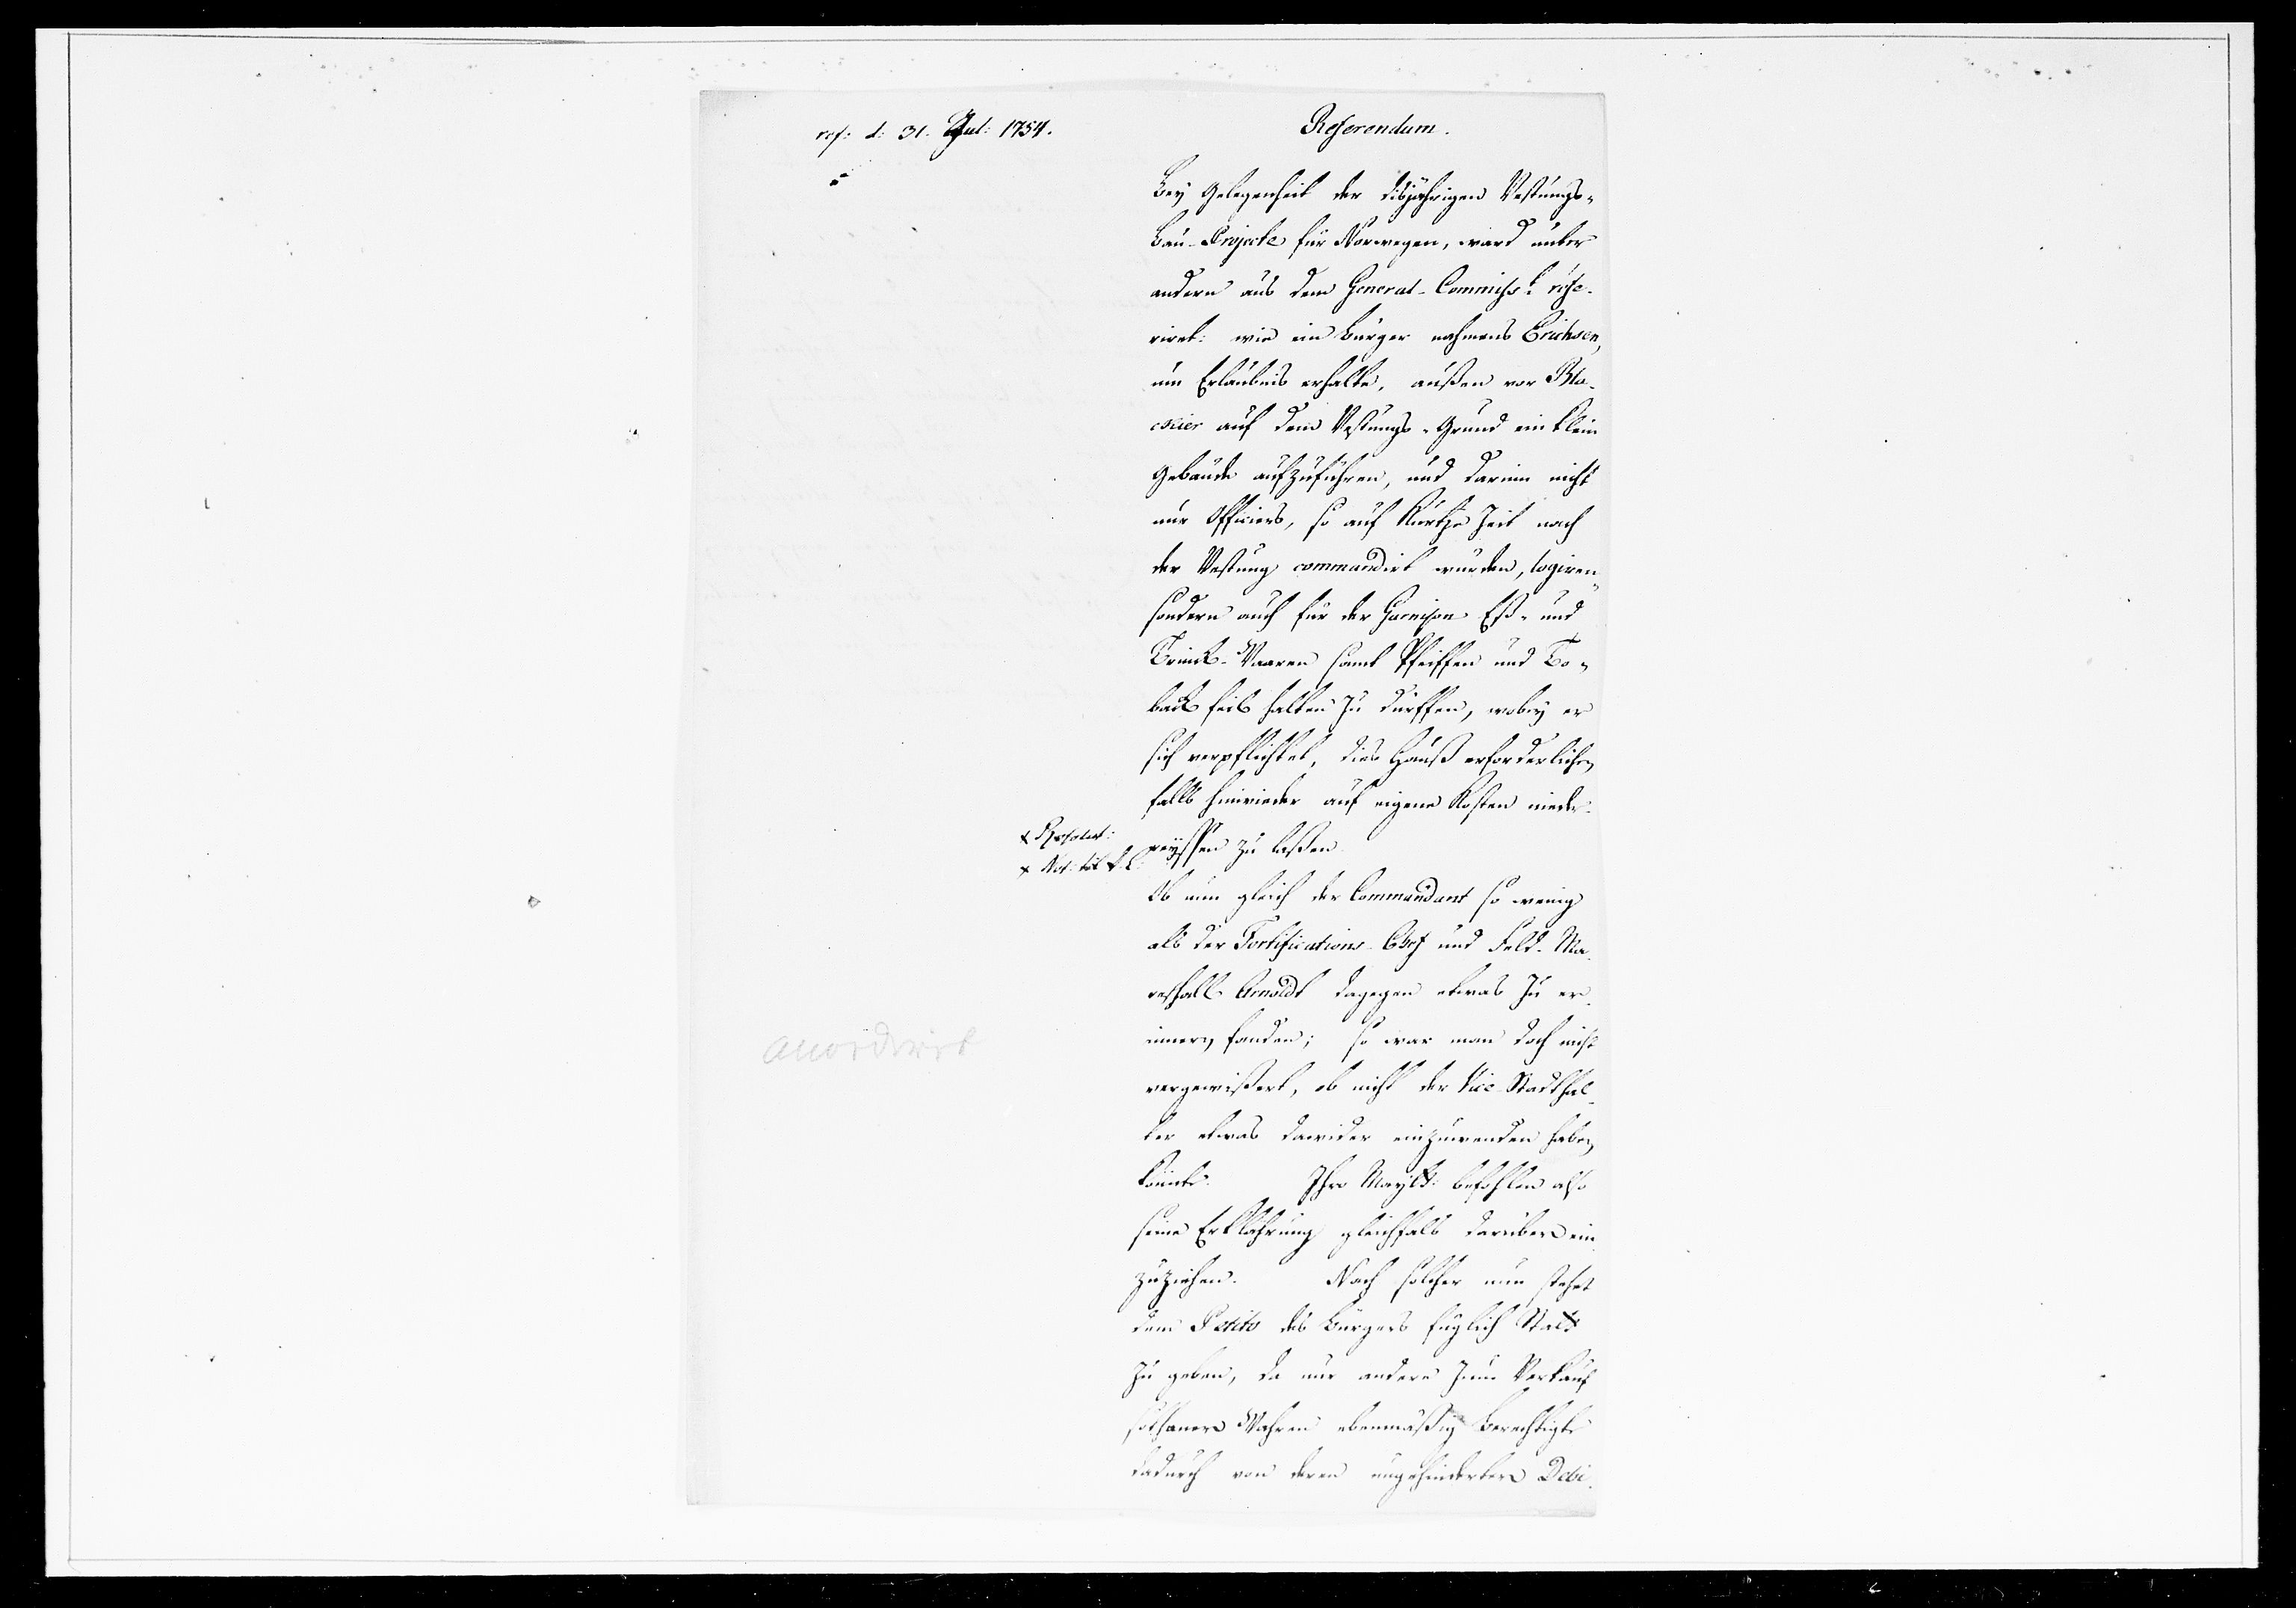 ref: d: 31. Jul: 1754.
Referendum.
Bey Gelegenheit der disjährigen Vestungs-
Bau-Projecte für Norwegen, ward unter
andern aus dem General-Commiss:t refe-
riret: wie ein Bürger nahmens Erichsen,
um Erlaubnis erhalte, außen vor Bla-
chier auf dem Vestungs-Grund ein klein
Gebäude aufzuführen, und darinn nicht
nur Officiers, so auf kurtze Zeit nach
der Vestung commandirt würden, logiren
sondern auch für der Garnison Eß- und
Trinck-Waaren samt Pfeiffen und To-
back feil halten zu dürffen, wobey er
sich verpflichtet, dies Hauß erforderlichen
falls hinwieder auf eigene Kosten nieder-
reyssen zu laßen.
x Resolut:
x Not: til
Ob nun gleich der Commandant so wenig
als der Fortifications-Chef und Feld-Ma-
reschall Arnoldt dagegen etwas zu er-
innern fanden; so war man doch nicht
vergewißert, ob nicht der Vice-Stadthal-
ter etwas dawider einzuwenden haben
könnte. Ihro Maytt: befohlen also
seine Erklährung gleichfalls darüber ein
zuziehen. Nach solcher nun stehet
dem Petito des Bürgers füglich Statt
zu geben, da nur andere zum Verkauf
sothaner Wahren ebenmäßig Berechtigte
dadurch von deren ungehinderten Debi-
accordirt